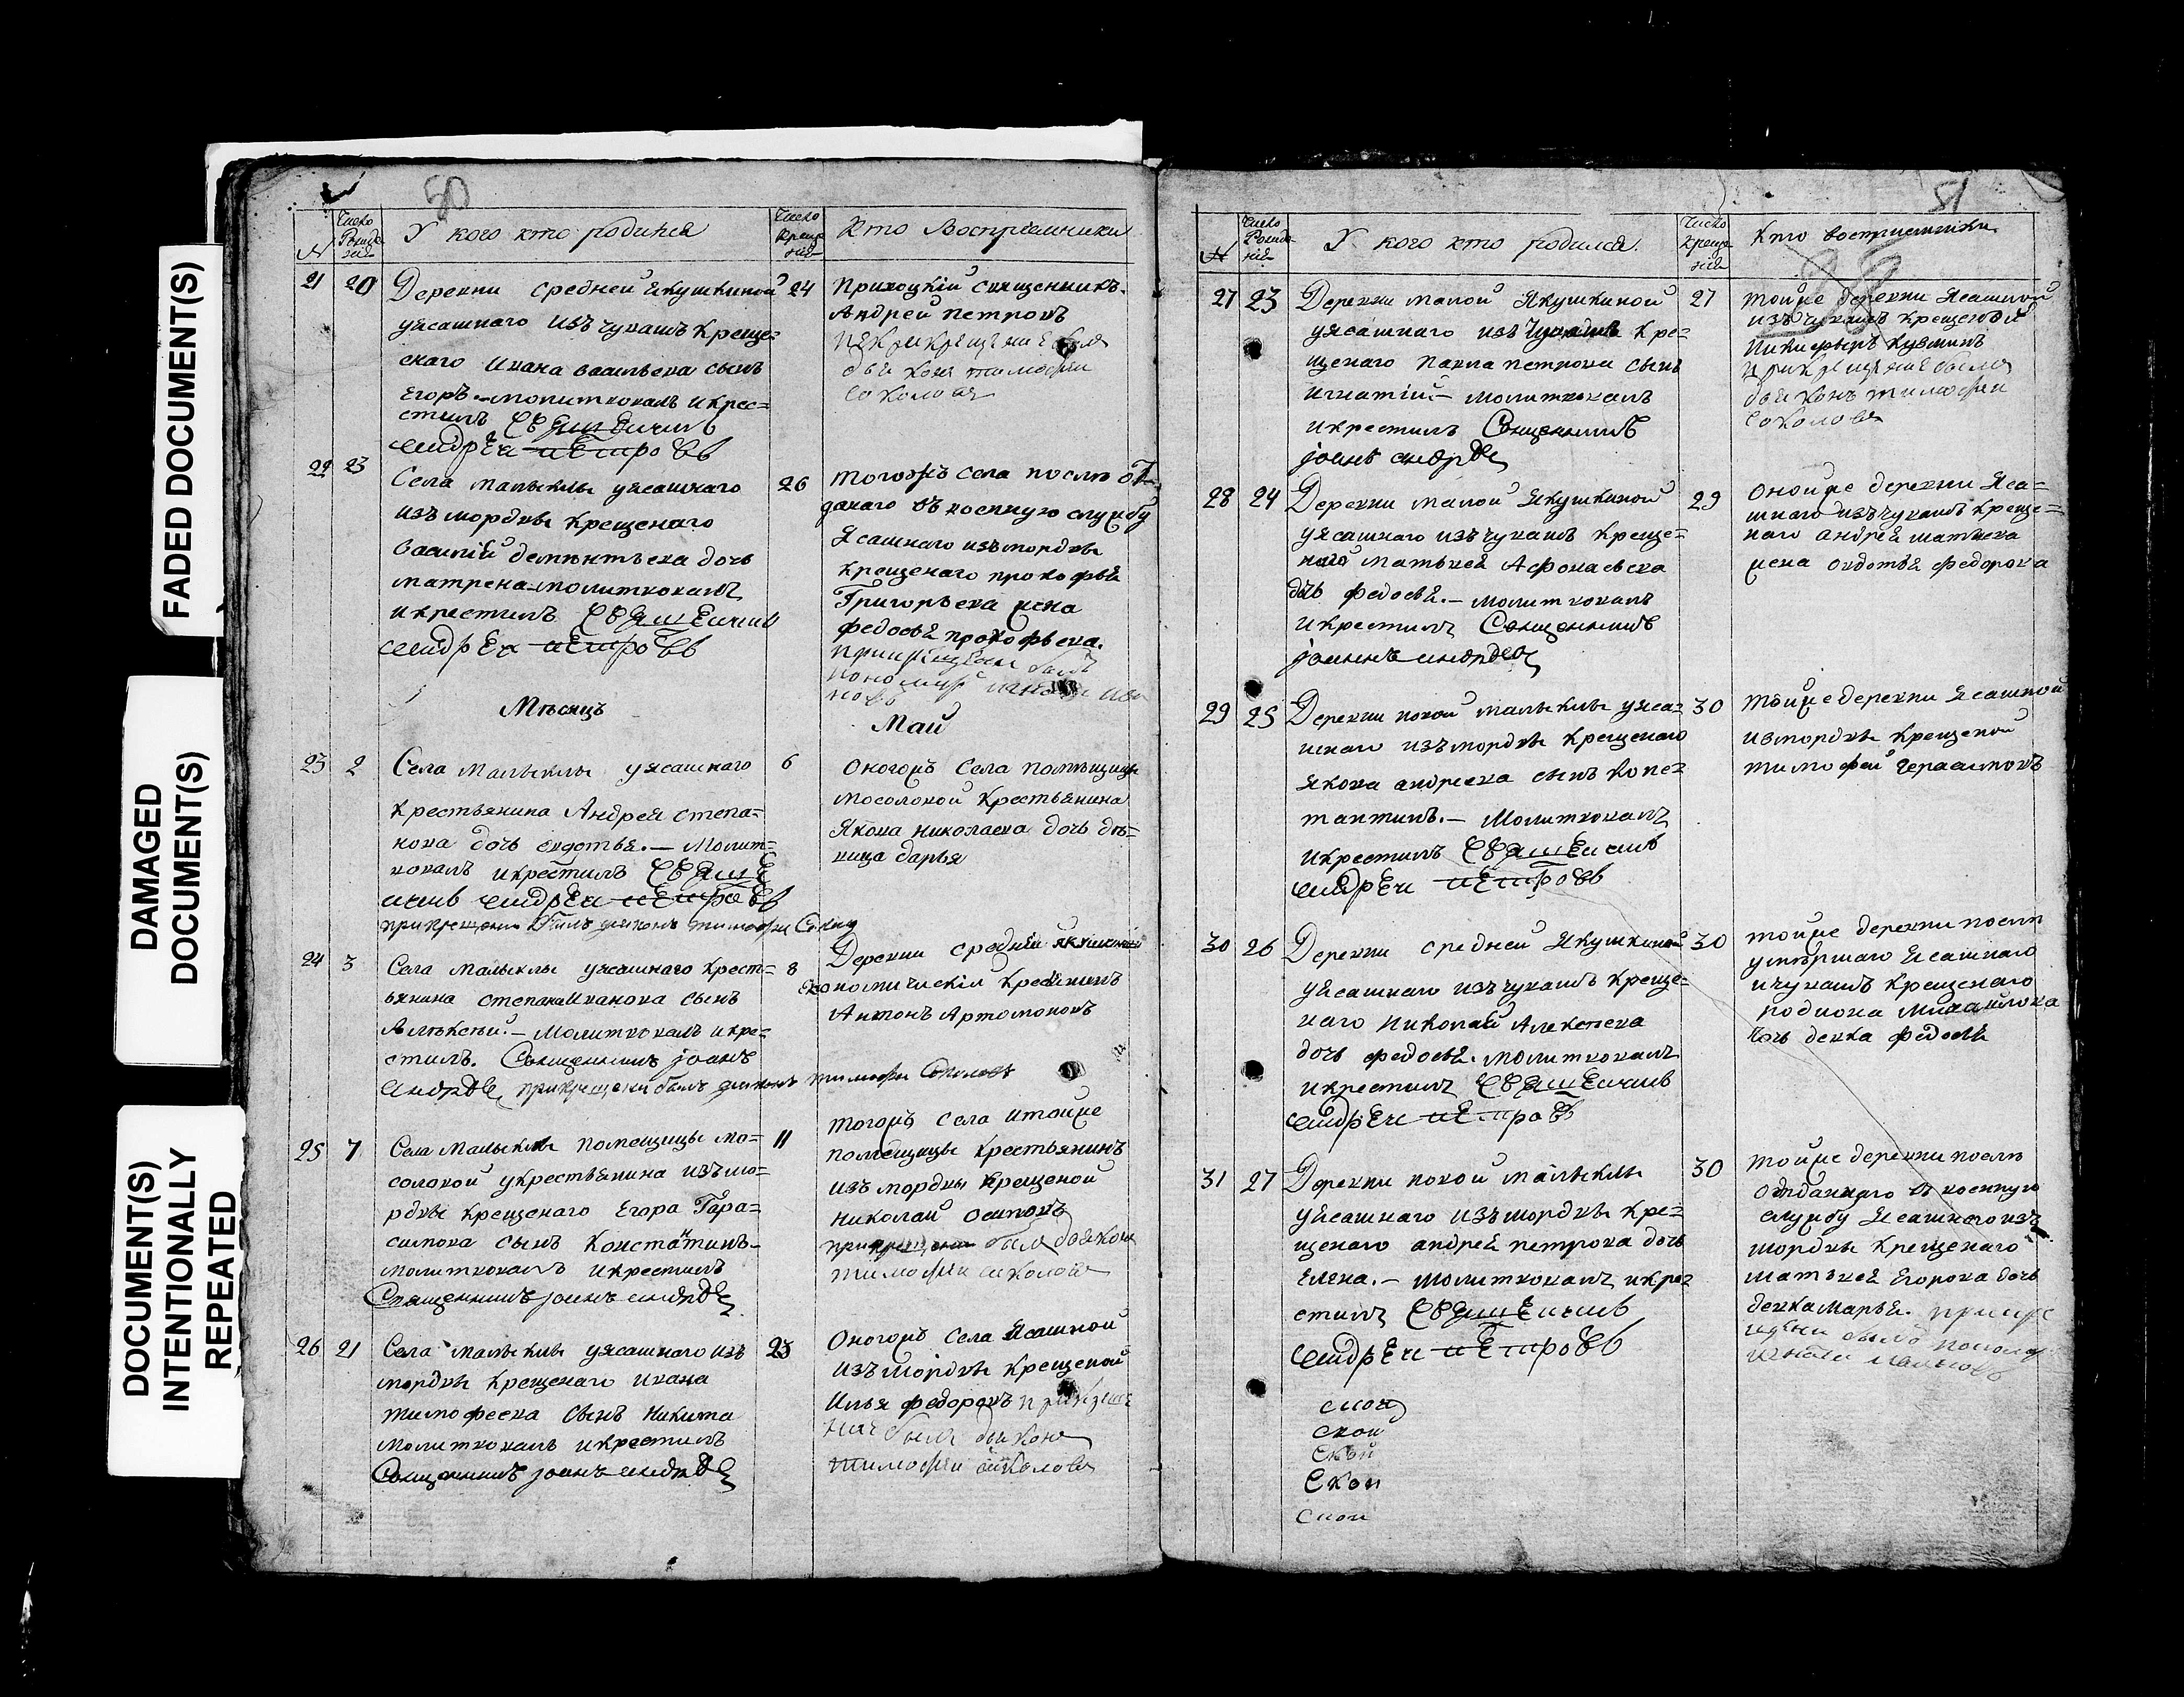 FADED DOCUMENT(S)
DAMAGED
DOCUMENT(S)
DOCUMENT(S)
INTENTIONALLY
REPEATED
50
N
Число Рожде нія
У кого кто родился
Число Креще нія
Кто Воспріемники
21 20 Деревни средней Якушкиной 24
уясашнаго изъ чувашъ креще=
енаго Ивана васильева сынъ
Егоръ – молитвовалъ икрес=
стилъ Священникъ
андреи петровъ
Приходскій священникъ
Андрей петровъ
прикрещение былъ
дьяконъ тимофеи
соколовъ
22 23 Села малыклы уясашнаго 26
изъ мордвы крещенаго
василій дементьева дочь
матрена – молитвовалъ
икрестилъ Священникъ
андреи петровъ
тогожъ села послѣ от
данаго въ военную службу
Ясашнаго изъ мордвы
крещенаго прокофья
Григорьева жена
федосья прокофьева.
при крещении былъ
пономарь
Мѣсяцъ
Май
23 2 Села малыклы уясашнаго 6
крестьянина Андрея степа=
нова дочь евдотья. – Молит=
вовалъ икрестилъ Священ
никъ андреи петровъ
прикрещении былъ дьяконъ тимофеи
Оногожъ села помѣщицы
мосоловой крестьянина
Якова николаева дочь дѣ=
вица дарья
24 3 Села малыклы уясашнаго крест= 8
ьянина степана Иванова сынъ
Алѣксѣй. – Молитвовалъ икре=
стилъ. Священникъ Іоаннъ
андреевъ прикрещении былъ дьяконъ тимофеи Соколовъ
Деревни средней якушкиной
економическій крестьянинъ
Антонъ Артомоновъ
25 7 Села малыклы помещицы мо= 11
соловой укрестьянина изъ мо=
рдвы крещенаго Егора Гара=
симова сынъ Константинъ –
молитвовалъ икрестилъ
Священникъ Іоаннъ андреевъ
тогожъ села итойже
помещицы крестьянинъ
изъ мордвы крещеной
николай осиповъ
прикрещении былъ дьяконъ
тимофеи соколовъ
26 21 Села малыклы уясашнаго изъ 23
мордвы крещенаго ивана
тимофеева сынъ никита
молитвовалъ икрестилъ
Священникъ Іоаннъ андреевъ
Оногожъ села Ясашной
изъ мордвы крещеной
Илья федоровъ прикреще
ние былъ дьяконъ
тимофеи соколовъ
51
N
Число Рожде нія
У кого кто родился.
Число креще нія
Кто воспріемники
27 23 Деревни малой Якушкиной 27
уясашнаго изъ чувашъ кре=
щенаго павла петрова сынъ
игнатій. – молитвовалъ
икрестилъ Священникъ
Іоаннъ андреевъ
тойже деревни Ясашной
изъ чувашъ крещеной
Никифоръ кузминъ
прикрещение былъ
дьяконъ тимофеи
соколовъ
28 24 Деревни малой Якушкиной 29
уясашнаго изъ чувашъ креще=
наго матьвея Афонасьева
дочь федосья. – молитвовалъ
икрестилъ Священникъ
Іоаннъ андреевъ
онойже деревни Яса=
шнаго изъ чувашъ креще=
наго андрея матвеева
жена овдотья федорова
29 25 Деревни новой малыклы уяса= 30
шнаго изъ мордвы крещенаго
якова андреева сынъ конс=
тантинъ. – Молитвовалъ
икрестилъ Священникъ
андреи петровъ
тойже деревни Ясашной
измордвы крещеной
тимофей герасимовъ
30 26 Деревни средней Якушкиной 30
уясашнаго изъ чувашъ креще=
наго Николай Алексеева
дочь федосья. молитвовалъ
икрестилъ Священникъ
андреи петровъ
тойже деревни послѣ
умѣршаго Ясашнаго
ичувашъ крещенаго
родиона михайлова
дочь девка федосья
31 27 Деревни новой малыклы 30
уясашнаго изъ мордвы кре=
щенаго андрея петрова дочь
Елена. – молитвовалъ икре=
стилъ Священникъ
андреи петровъ
тойже деревни послѣ
отданнаго въ военную
службу Ясашнаго изъ
мордвы крещенаго
матьвея Егорова дочь
девка марья. при кре
щении былъ пономарь
свой
свой
Свой
Свой
свой